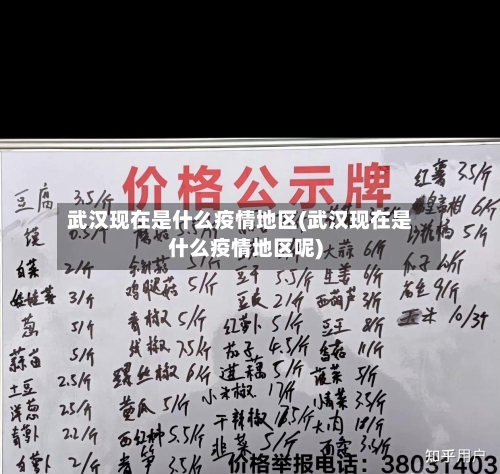 价格公示牌
武汉现在是什么疫情地区(武汉现在是
什么疫情地区呢)
豆腐 3.5/斤
白菜 2/斤
娃娃菜 3/斤
葱 5/斤
蒜苗 5/斤
土豆 2.5/斤
洋葱 2.5/斤
青萝卜 2.2/斤
白萝卜 2/斤
鸡腿菇 5/斤
青椒 5/斤
线椒 7.5/斤
螺丝椒 6/斤
黄瓜 5/斤
西红柿 5.5/斤
青笋 3.5/斤
豆干 5.5/斤
豆皮 2/斤
红萝卜 5/斤
茄子 4.5/斤
莲藕 5/斤
小米椒 17/斤
干辣椒
韭菜 5/斤
大蒜 6/斤
生姜 6/斤
西葫芦 3/斤
豆王 8/斤
香菇 11/斤
菠菜 5/斤
3.5/斤
大肉 18/斤
3.5/斤
红薯 3.5/斤
6/斤
5/斤
瓜子 10/斤
花生 9/斤
玉米 10/3个
价格举报电话：38031403
知乎用户